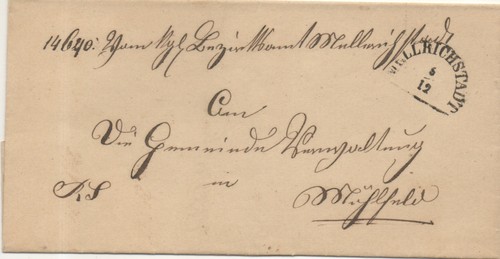 14640. Vom kgl. Bezirksamt Mellrichstadt
MELLRICHSTADT
6
12
An
Die Gemeinde Verwaltung
in
R.S. Mühlfeld